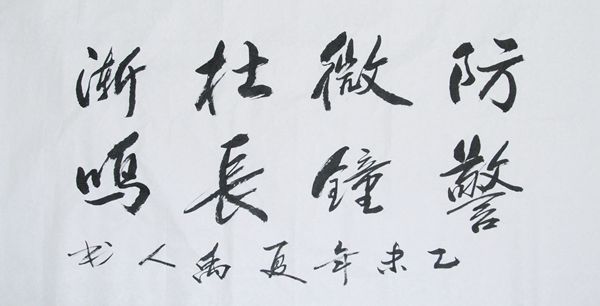 防微杜漸
警鐘長鳴
乙未年夏禹人书